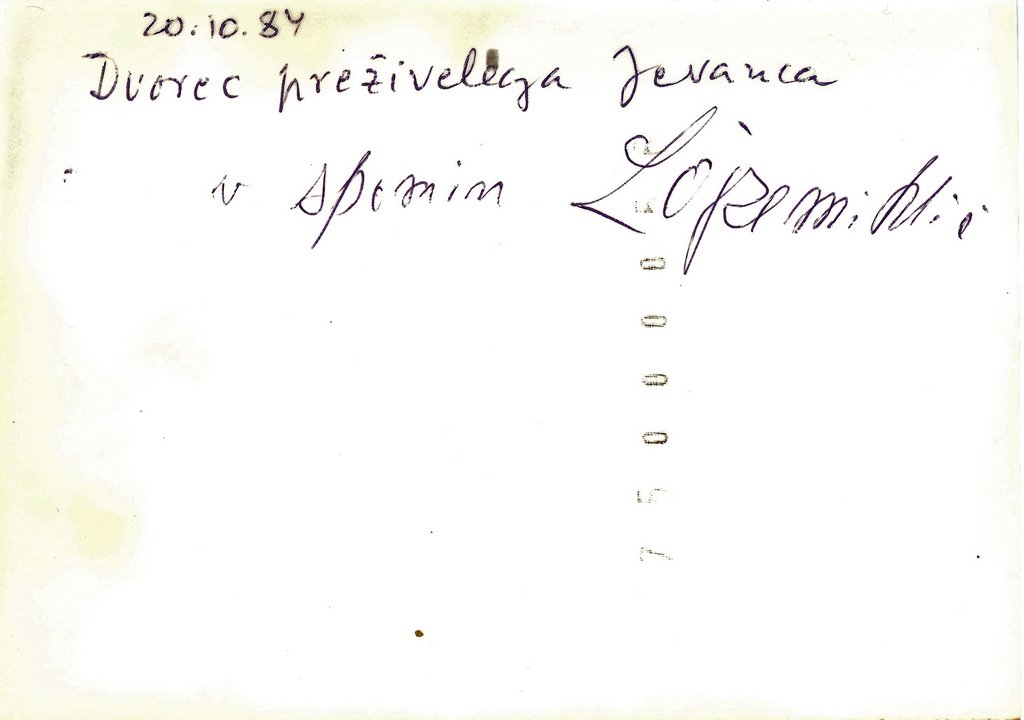 20.10.84
Dvorec preživelega Jevanca
v spomin Lojze Miklič
7 5 0 0 0 0 5